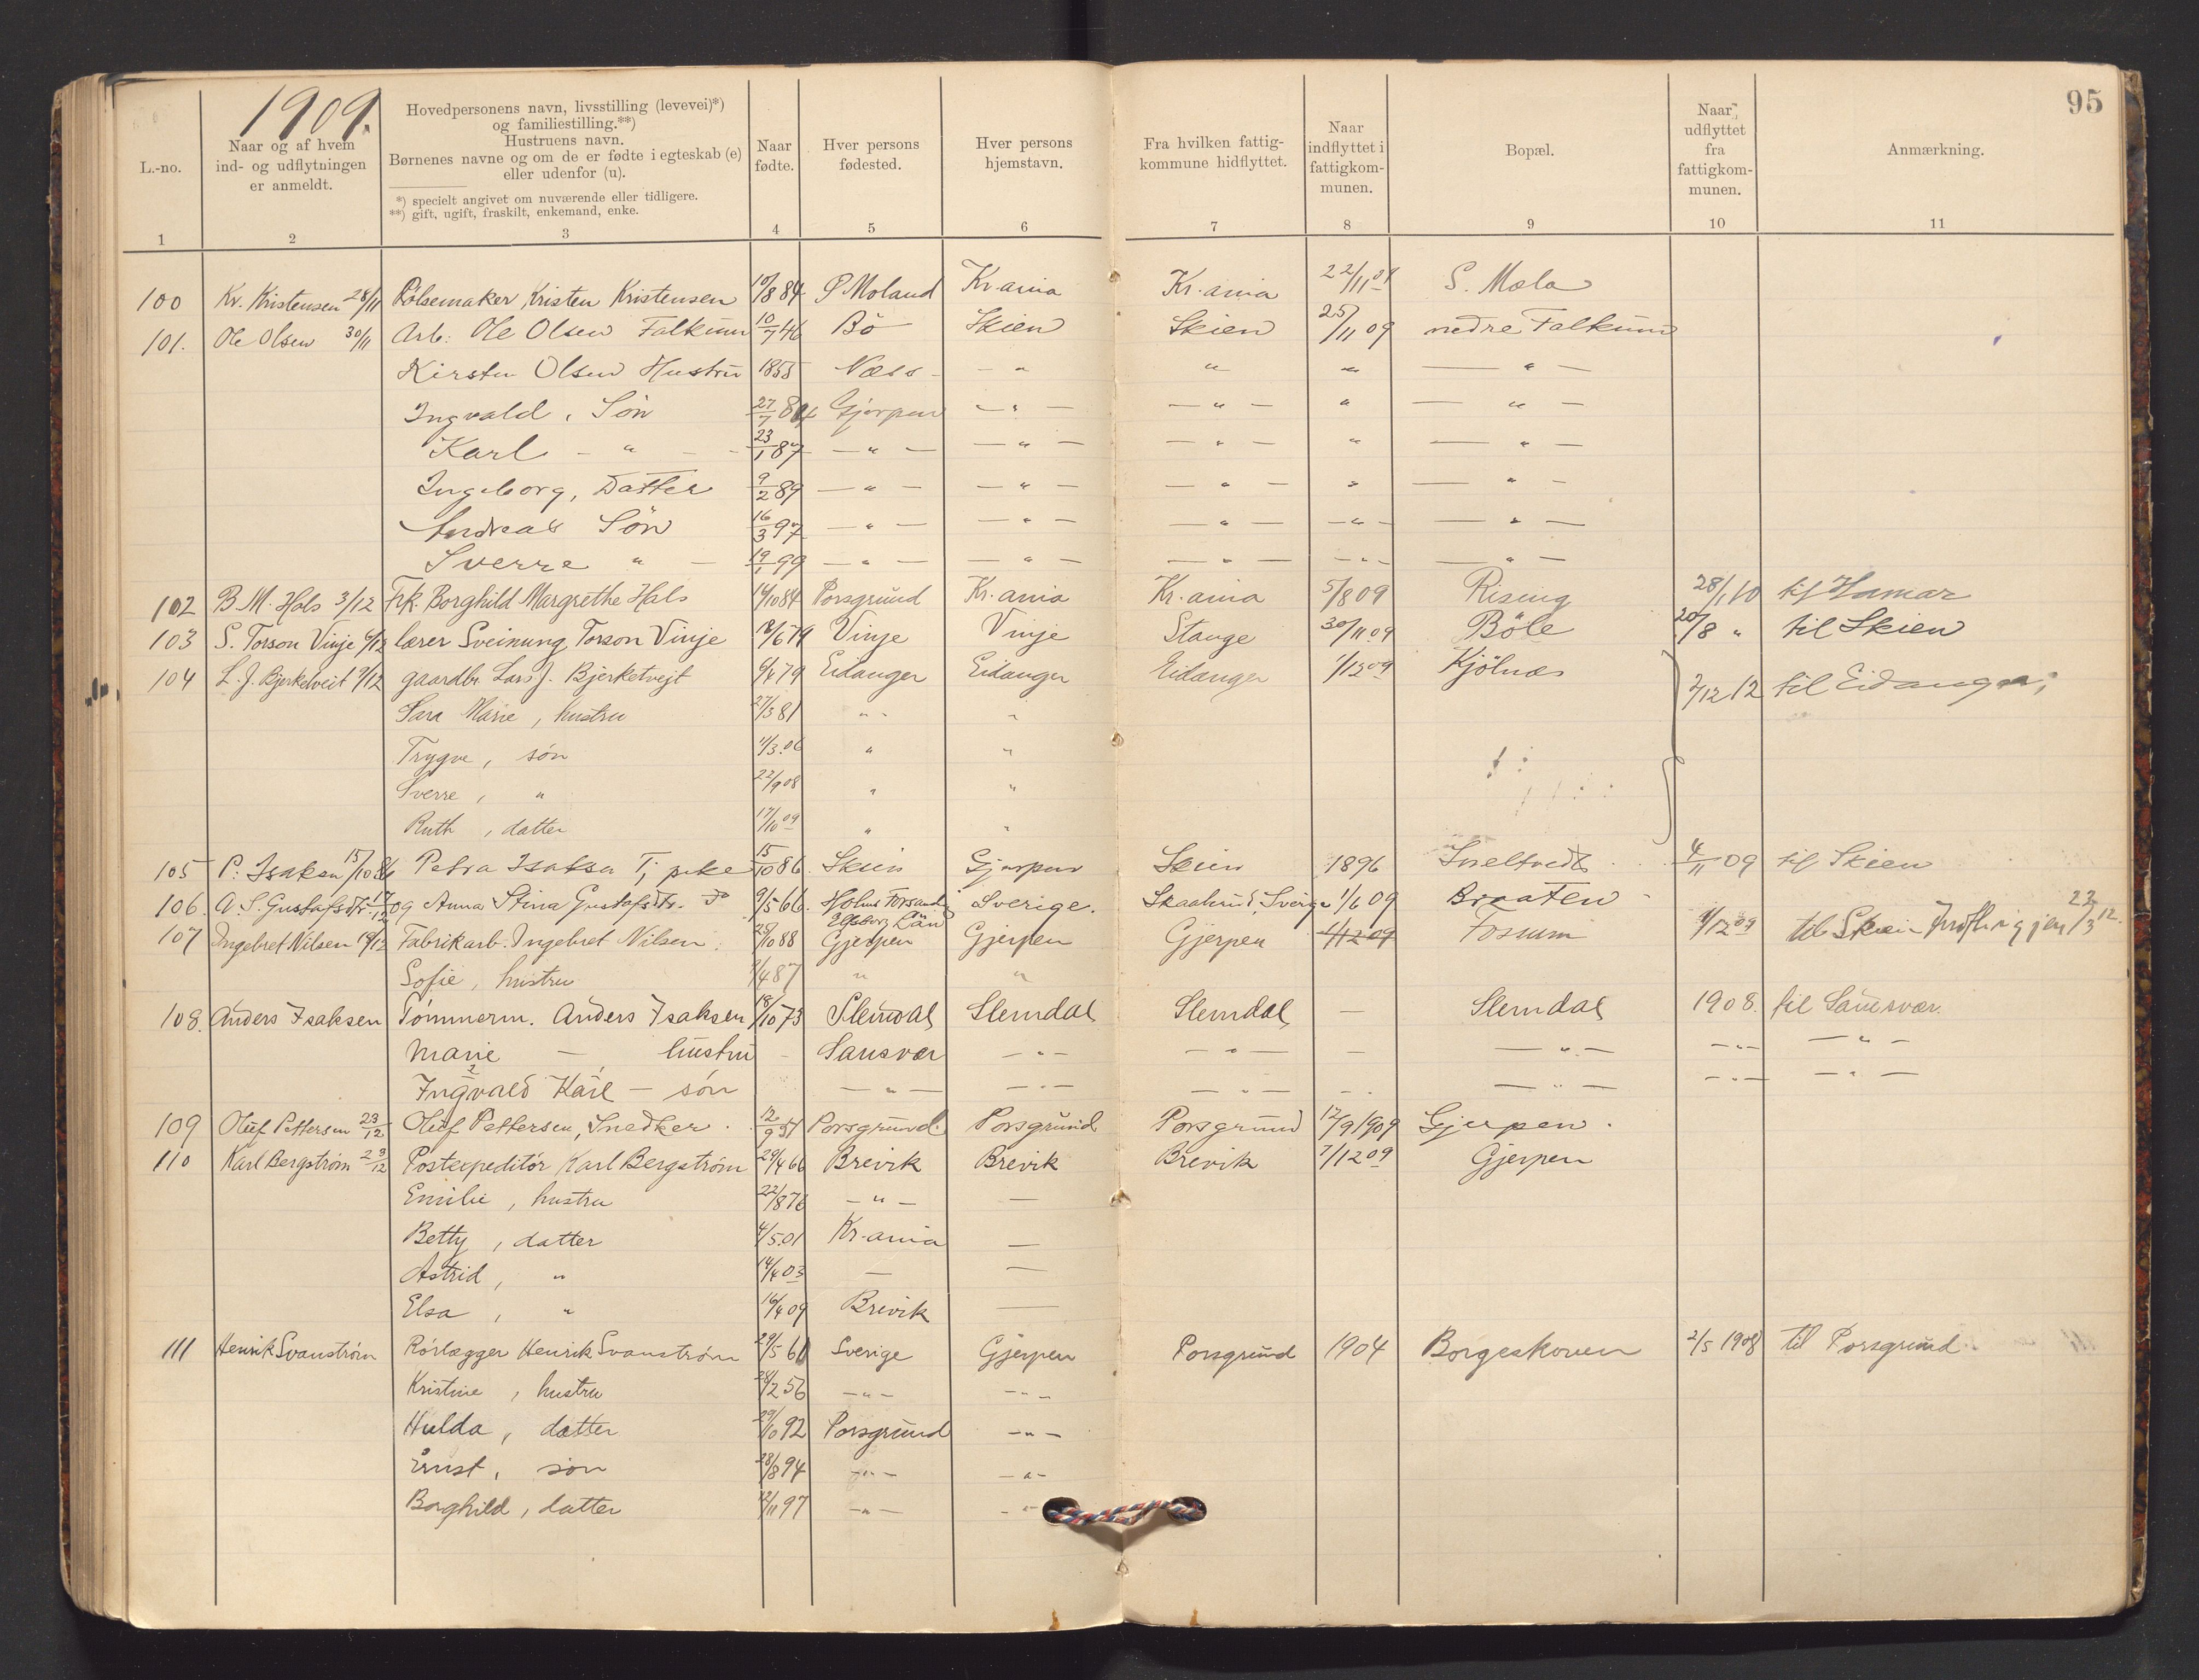 1909.
95
L.-no.
Naar og af hvem ind- og udflytningen er anmeldt.
Hovedpersonens navn, livsstilling (levevei)*) og familiestilling.**)
Hustruens navn.
Børnenes navne og om de er fødte i egteskab (e) eller udenfor (u).
*) specielt angivet om nuværende eller tidligere.
**) gift, ugift, fraskilt, enkemand, enke.
Naar fødte.
Hver persons fødested.
Hver persons hjemstavn.
Fra hvilken fattigkommune hidflyttet.
Naar indflyttet i fattigkommunen.
Bopæl.
Naar udflyttet fra fattigkommunen.
Anmærkning.
1 2 3 4 5 6 7 8 9 10 11
100 Kr. Kristensen 28/11 Pølsemaker Kristen Kristensen 10/8 84 Ø Moland Kr.ania Kr.ania 22/11 09 S. Mæla
101. Ole Olsen 30/11 Arb. Ole Olsen Falkum 10/7 46 Bö Skien Skien 25/11 09 nedre Falkum
Kirsten Olsen Hustru 1855 Næss - " - " " - " -
Ingvald, Sön 27/7 84 Gjerpen - " - - " - " - " -
Karl - " - 23/1 87 - " - - " - - " - " - " -
Ingeborg, Datter 9/2 89 - " - - " - - " - " - " -
Andreas Sön 16/3 97 - " - - " - - " - - " - - " -
Sverre " - 19/1 99 - " - - " - - " - - " - - " -
102 B. M. Hals 3/12 Frk. Borghild Margrethe Hals 14/10 84 Porsgrund Kr.ania Kr.ania 5/8 09 Rising 28/1 10 til Hamar
103 S. Torson Vinje 6/12 lærer Sveinung Torson Vinje 18/6 79 Vinje Vinje Stange 30/11 09 Böle 20/8 " til Skien
104 L. J. Bjerketveit 9/12 gaardbr. Lars J. Bjerketvejt 9/4 79 Eidanger Eidanger Eidanger 1/12 09 Kjölnæs 2/12 12 til Eidanger
Sara Marie, hustru 27/3 81 " "
Trygve, sön 11/3 06 " "
Sverre, " 22/9 08 " "
Ruth, datter 17/10 09 " "
105 P. Isaksen 15/10 86 Petra Isaksen Tj. pike 15/10 86 Skien Gjerpen Skien 1896 Sneltvedt 4/11 09 til Skien
106. A. S. Gustafsdtr. 17/12 09 Anna Stina Gustafsdtr. 9/5 66. Holms Torsand Elfsborg Län Sverige. Sverige 1/6 09 Braaten
107 Ingebret Nilsen 19/12 Fabrikarb. Ingebret Nilsen 25/10 88 Gjerpen Gjerpen Gjerpen 1/12 09 Fossum 1/12 09 til Skien 23/3 12.
Sofie, hustru 7/4 87 " "
108. Anders Isaksen Tömmerm. Anders Isaksen 18/10 73 Slemdal Slemdal Slemdal - Slemdal 1908. til Sansvær.
Marie - hustru - Sansvær - " - - " - - - " - - " - - " -
Ingvald Karl - sön - " - - " - - " - - - " - - " - - " -
109 Oluf Pettersen 23/12 Oluf Pettersen, Snedker. 12/9 51 Porsgrund. Porsgrund Porsgrund 12/9 1909 Gjerpen.
110 Karl Bergström 23/12 Postexpeditör Karl Bergström 29/4 66 Brevik Brevik Brevik 7/12 09 Gjerpen
Emilie, hustru 22/8 76 - " - -
Betty, datter 4/5 01 Kr.ania -
Astrid, " 14/4 03 - -
Elsa, " 16/4 09 Brevik -
111 Henrik Svanström Rörlægger Henrik Svanström 29/5 61 Sverige Gjerpen Porsgrund 1904 Borgeskoven 2/5 1908 til Porsgrund
Kristine, hustru 28/2 56 - " - - " -
Hulda, datter 29/10 92 Porsgrund - " -
Ernst, sön 28/8 94 - " - - " -
Borghild, datter 12/11 97 - " - - " -